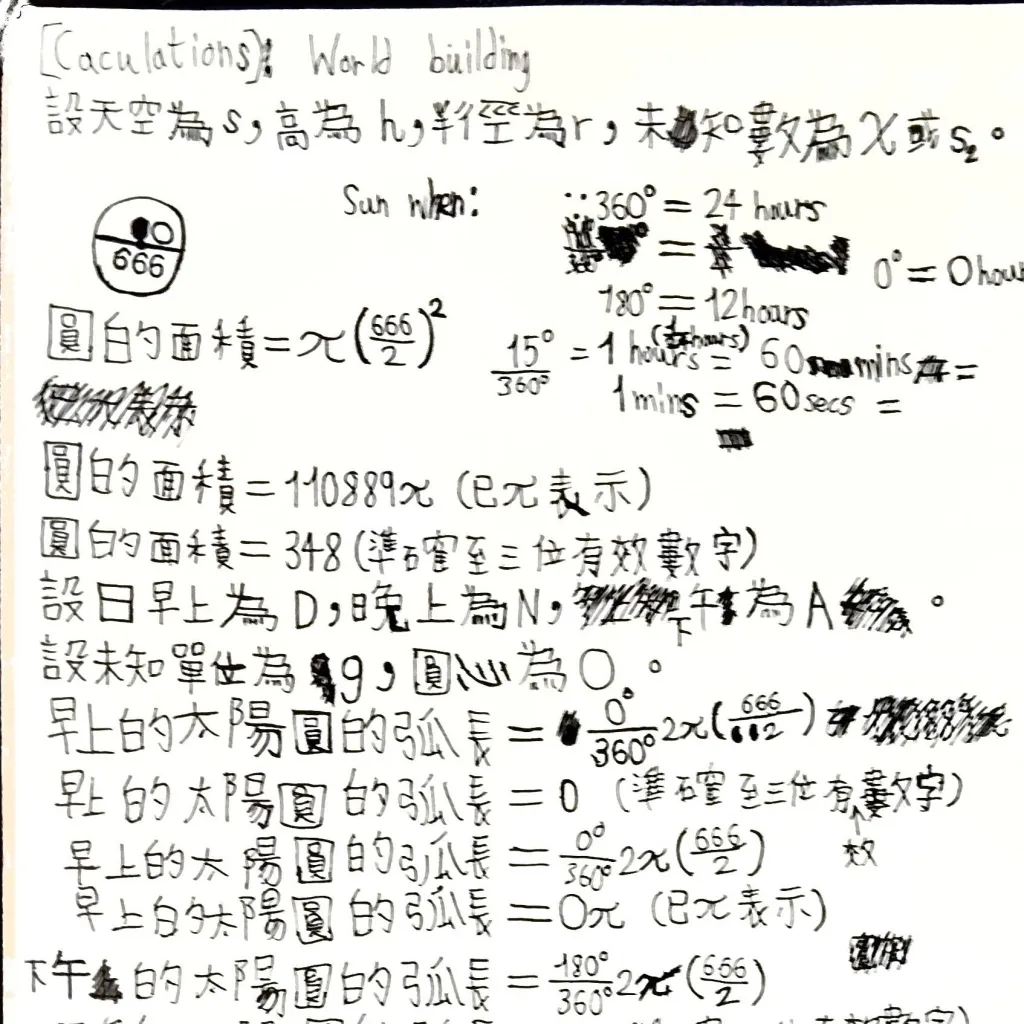 [Caculations]: World building
設天空為s，高為h，半徑為r，未知數為x或s₂。
Sun when:
∵360° = 24 hours
0° = 0 hour
180° = 12hours
666
圓的面積=π(666/2)²
15°/360° = 1 hours = 60 mins =
1mins = 60secs =
圓的面積=110889π (已π表示)
圓的面積=348(準確至三位有效數字)
設日早上為D，晚上為N，下午為A。
設未知單位為g，圓心為O。
早上的太陽圓的弧長=0°/360°2π(666/2)
早上的太陽圓的弧長=0 (準確至三位有數字)
效
早上的太陽圓的弧長=0°/360°2π(666/2)
早上的太陽圓的弧長=0π (已π表示)
下午的太陽圓的弧長=180°/360°2π(666/2)